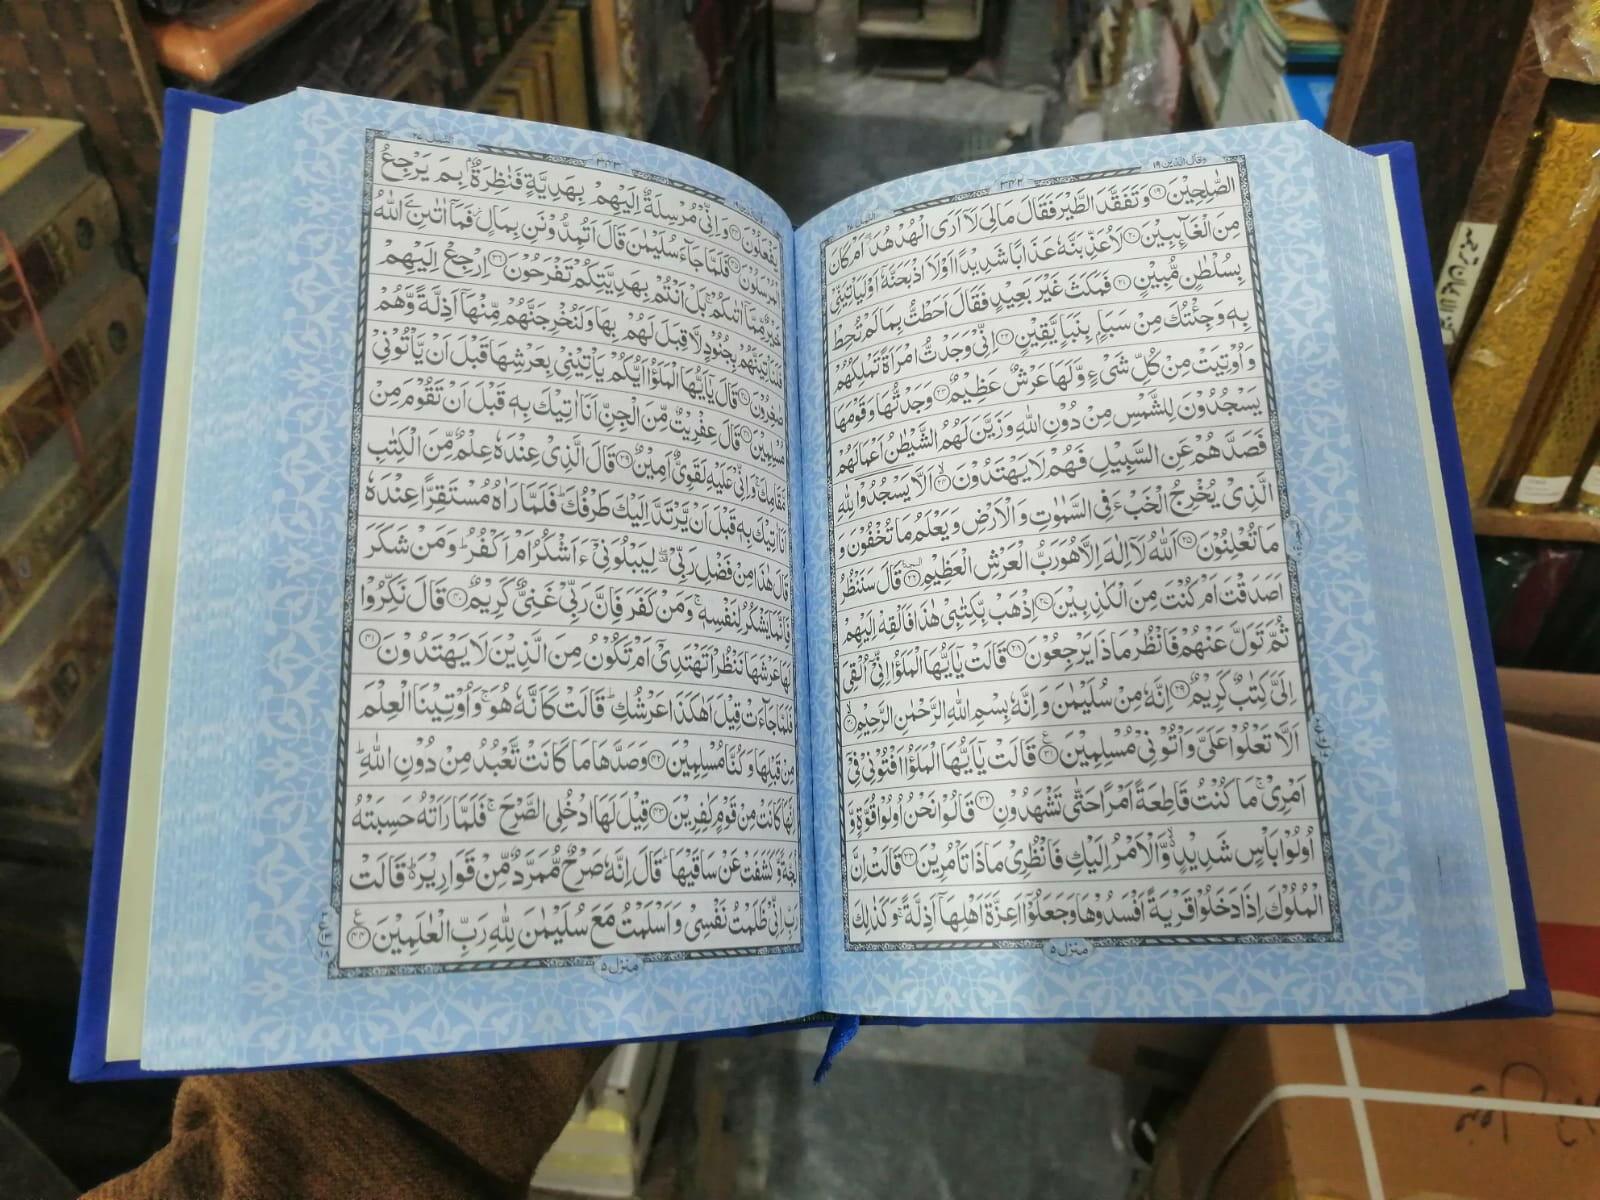 وقال الذین ۱۹
۳۴۲
النمل ۲۷
الصّٰلِحِیْنَ ۱۹ وَتَفَقَّدَ الطَّیْرَ فَقَالَ مَالِیَ لَاۤ اَرَی الْهُدْهُدَ اَمْ كَانَ
مِنَ الْغَآئِبِیْنَ ۲۰ لَاُعَذِّبَنَّهٗ عَذَابًا شَدِیْدًا اَوْ لَاۡاَذْبَحَنَّهٗۤ اَوْلَیَاْتِیَنِّیْ
بِسُلْطٰنٍ مُّبِیْنٍ ۲۱ فَمَكَثَ غَیْرَ بَعِیْدٍ فَقَالَ اَحَطْتُّ بِمَا لَمْ تُحِطْ
بِهٖ وَجِئْتُكَ مِنْ سَبَاٍۭ بِنَبَاٍ یَّقِیْنٍ ۲۲ اِنِّیْ وَجَدْتُّ امْرَاَةً تَمْلِكُهُمْ
وَاُوْتِیَتْ مِنْ كُلِّ شَیْءٍ وَّلَهَا عَرْشٌ عَظِیْمٌ ۲۳ وَجَدْتُّهَا وَقَوْمَهَا
یَسْجُدُوْنَ لِلشَّمْسِ مِنْ دُوْنِ اللّٰهِ وَزَیَّنَ لَهُمُ الشَّیْطٰنُ اَعْمَالَهُمْ
فَصَدَّهُمْ عَنِ السَّبِیْلِ فَهُمْ لَا یَهْتَدُوْنَ ۲۴ اَلَّا یَسْجُدُوْا لِلّٰهِ
الَّذِیْ یُخْرِجُ الْخَبْءَ فِی السَّمٰوٰتِ وَالْاَرْضِ وَیَعْلَمُ مَا تُخْفُوْنَ وَ
مَا تُعْلِنُوْنَ ۲۵ اَللّٰهُ لَاۤ اِلٰهَ اِلَّا هُوَ رَبُّ الْعَرْشِ الْعَظِیْمِ ۲۶ قَالَ سَنَنْظُرُ
اَصَدَقْتَ اَمْ كُنْتَ مِنَ الْكٰذِبِیْنَ ۲۷ اِذْهَبْ بِّكِتٰبِیْ هٰذَا فَاَلْقِهْ اِلَیْهِمْ
ثُمَّ تَوَلَّ عَنْهُمْ فَانْظُرْ مَاذَا یَرْجِعُوْنَ ۲۸ قَالَتْ یٰۤاَیُّهَا الْمَلَؤُا اِنِّیْۤ اُلْقِیَ
اِلَیَّ كِتٰبٌ كَرِیْمٌ ۲۹ اِنَّهٗ مِنْ سُلَیْمٰنَ وَاِنَّهٗ بِسْمِ اللّٰهِ الرَّحْمٰنِ الرَّحِیْمِ ۳۰
اَلَّا تَعْلُوْا عَلَیَّ وَاْتُوْنِیْ مُسْلِمِیْنَ ۳۱ قَالَتْ یٰۤاَیُّهَا الْمَلَؤُا اَفْتُوْنِیْ فِیْۤ
اَمْرِیْۚ مَا كُنْتُ قَاطِعَةً اَمْرًا حَتّٰی تَشْهَدُوْنِ ۳۲ قَالُوْا نَحْنُ اُولُوْا قُوَّةٍ وَّ
اُولُوْا بَاْسٍ شَدِیْدٍ وَّالْاَمْرُ اِلَیْكِ فَانْظُرِیْ مَاذَا تَاْمُرِیْنَ ۳۳ قَالَتْ اِنَّ
الْمُلُوْكَ اِذَا دَخَلُوْا قَرْیَةً اَفْسَدُوْهَا وَجَعَلُوْۤا اَعِزَّةَ اَهْلِهَاۤ اَذِلَّةًۚ وَكَذٰلِكَ
منزل ۵
۳۴۳
النمل ۲۷
یَفْعَلُوْنَ ۳۴ وَاِنِّیْ مُرْسِلَةٌ اِلَیْهِمْ بِهَدِیَّةٍ فَنٰظِرَةٌۢ بِمَ یَرْجِعُ
الْمُرْسَلُوْنَ ۳۵ فَلَمَّا جَآءَ سُلَیْمٰنَ قَالَ اَتُمِدُّوْنَنِ بِمَالٍ فَمَاۤ اٰتٰىنِۦَ اللّٰهُ
خَیْرٌ مِّمَّاۤ اٰتٰىكُمْۚ بَلْ اَنْتُمْ بِهَدِیَّتِكُمْ تَفْرَحُوْنَ ۳۶ اِرْجِعْ اِلَیْهِمْ
فَلَنَاْتِیَنَّهُمْ بِجُنُوْدٍ لَّا قِبَلَ لَهُمْ بِهَا وَلَنُخْرِجَنَّهُمْ مِّنْهَاۤ اَذِلَّةً وَّهُمْ
صٰغِرُوْنَ ۳۷ قَالَ یٰۤاَیُّهَا الْمَلَؤُا اَیُّكُمْ یَاْتِیْنِیْ بِعَرْشِهَا قَبْلَ اَنْ یَّاْتُوْنِیْ
مُسْلِمِیْنَ ۳۸ قَالَ عِفْرِیْتٌ مِّنَ الْجِنِّ اَنَا اٰتِیْكَ بِهٖ قَبْلَ اَنْ تَقُوْمَ مِنْ
مَّقَامِكَۚ وَاِنِّیْ عَلَیْهِ لَقَوِیٌّ اَمِیْنٌ ۳۹ قَالَ الَّذِیْ عِنْدَهٗ عِلْمٌ مِّنَ الْكِتٰبِ
اَنَا اٰتِیْكَ بِهٖ قَبْلَ اَنْ یَّرْتَدَّ اِلَیْكَ طَرْفُكَؕ فَلَمَّا رَاٰهُ مُسْتَقِرًّا عِنْدَهٗ
قَالَ هٰذَا مِنْ فَضْلِ رَبِّیْ لِیَبْلُوَنِیْۤ ءَاَشْكُرُ اَمْ اَكْفُرُؕ وَمَنْ شَكَرَ
فَاِنَّمَا یَشْكُرُ لِنَفْسِهٖۚ وَمَنْ كَفَرَ فَاِنَّ رَبِّیْ غَنِیٌّ كَرِیْمٌ ۴۰ قَالَ نَكِّرُوْا
لَهَا عَرْشَهَا نَنْظُرْ اَتَهْتَدِیْۤ اَمْ تَكُوْنُ مِنَ الَّذِیْنَ لَا یَهْتَدُوْنَ ۴۱
فَلَمَّا جَآءَتْ قِیْلَ اَهٰكَذَا عَرْشُكِؕ قَالَتْ كَاَنَّهٗ هُوَۚ وَاُوْتِیْنَا الْعِلْمَ
مِنْ قَبْلِهَا وَكُنَّا مُسْلِمِیْنَ ۴۲ وَصَدَّهَا مَا كَانَتْ تَّعْبُدُ مِنْ دُوْنِ اللّٰهِؕ
اِنَّهَا كَانَتْ مِنْ قَوْمٍ كٰفِرِیْنَ ۴۳ قِیْلَ لَهَا ادْخُلِی الصَّرْحَۚ فَلَمَّا رَاَتْهُ حَسِبَتْهُ
لُجَّةً وَّكَشَفَتْ عَنْ سَاقَیْهَاؕ قَالَ اِنَّهٗ صَرْحٌ مُّمَرَّدٌ مِّنْ قَوَارِیْرَؕ قَالَتْ
رَبِّ اِنِّیْ ظَلَمْتُ نَفْسِیْ وَاَسْلَمْتُ مَعَ سُلَیْمٰنَ لِلّٰهِ رَبِّ الْعٰلَمِیْنَ ۴۴
منزل ۵